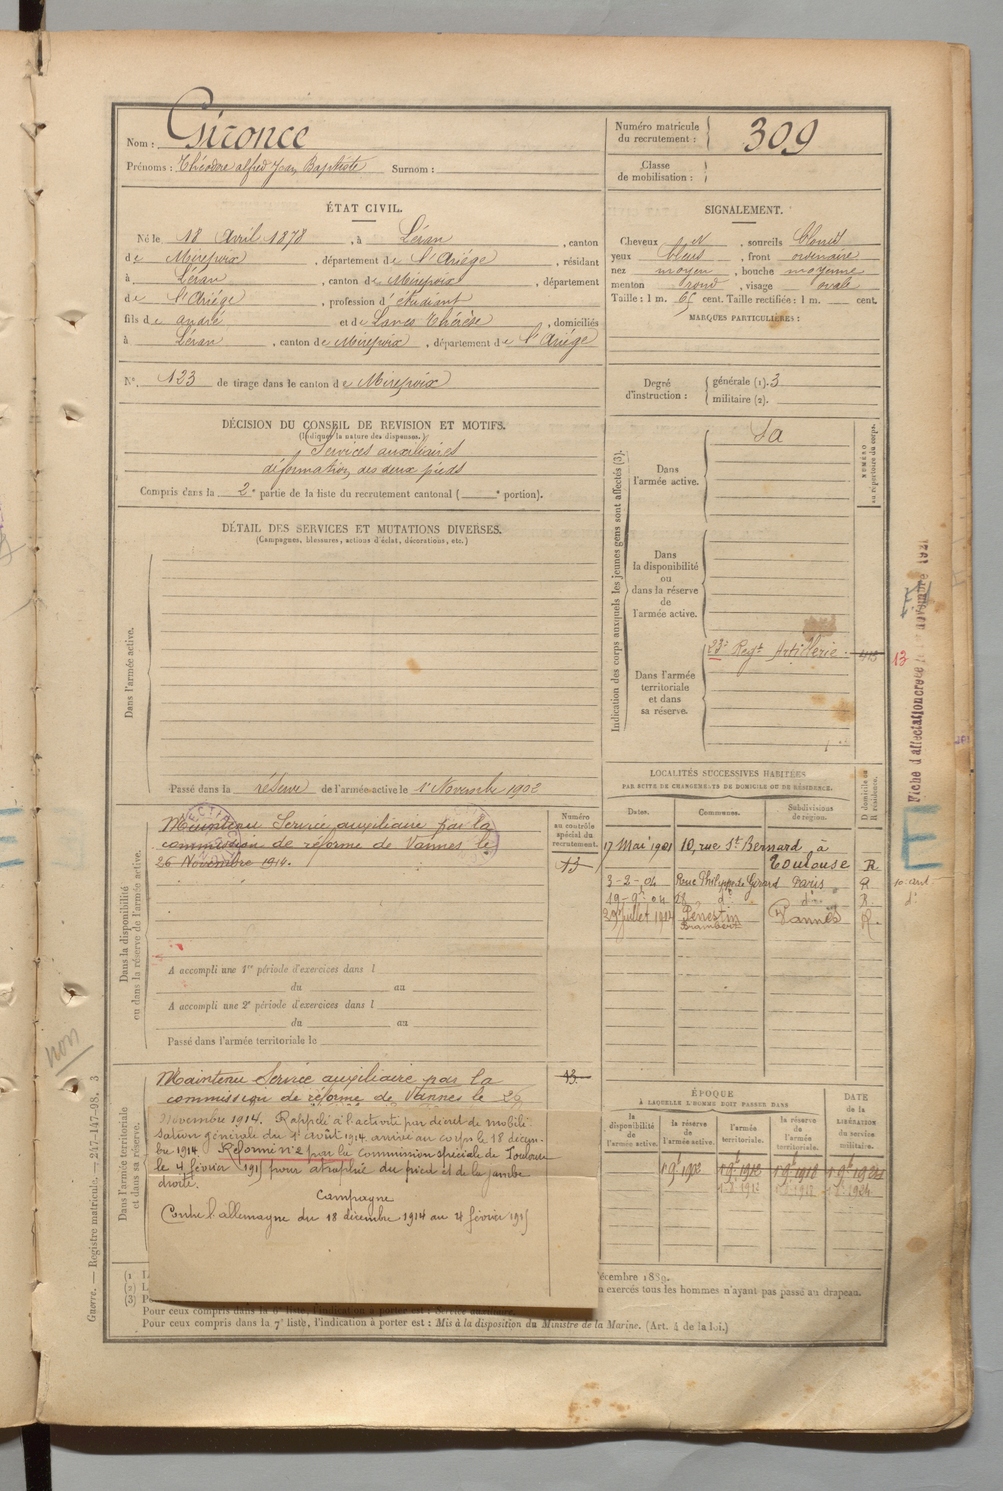 Nom : Gironce
Prénoms : Théodore alfred Jean Baptiste Surnom :
Numéro matricule du recrutement : 309
Classe de mobilisation :
ÉTAT CIVIL.
Né le 18 Avril 1878, à Léran, canton
de Mirepoix, département de l'Ariége, résidant
à Léran, canton de Mirepoix, département
de l'Ariége, profession d'étudiant
fils de andré et de Lanes Thérèse, domiciliés
à Léran, canton de Mirepoix, département de l'Ariége
N° 123 de tirage dans le canton de Mirepoix
SIGNALEMENT.
Cheveux N, sourcils blond
yeux bleus, front ordinaire
nez moyen, bouche moyenne
menton rond, visage ovale
Taille : 1 m. 65 cent. Taille rectifiée : 1 m. cent.
MARQUES PARTICULIÈRES :
Degré d'instruction : générale (1). 3
militaire (2).
DÉCISION DU CONSEIL DE REVISION ET MOTIFS.
(Indiquer la nature des dispenses.)
Services auxiliaires
déformation des deux pieds
Compris dans la 2e partie de la liste du recrutement cantonal ( e portion).
DÉTAIL DES SERVICES ET MUTATIONS DIVERSES.
(Campagnes, blessures, actions d'éclat, décorations, etc.)
Dans l'armée active.
Passé dans la réserve de l'armée active le 1er Novembre 1902
Indication des corps auxquels les jeunes gens sont affectés (3).
NUMÉRO au répertoire du corps.
Dans l'armée active.
Sa
Dans la disponibilité ou dans la réserve de l'armée active.
Dans l'armée territoriale et dans sa réserve.
23e Regt Artillerie
13
Fiche d'affectation créée le novembre 1921
LOCALITÉS SUCCESSIVES HABITÉES
PAR SUITE DE CHANGEMENTS DE DOMICILE OU DE RÉSIDENCE.
Dates. Communes. Subdivisions de région. D domicile ou R résidence.
17 Mai 1901 10, rue St Bernard à Toulouse R
3-2-04 Rue Philippe de Girard Paris R
19-9-04 28, do do R.
29 Juillet 1914 Pénestin Vannes R.
E
Dans la disponibilité ou dans la réserve de l'armée active.
Numéro au contrôle spécial du recrutement.
Maintenu Service auxiliaire par la
commission de réforme de Vannes le
26 Novembre 1914.
13
A accompli une 1re période d'exercices dans l
du au
A accompli une 2e période d'exercices dans l
du au
Passé dans l'armée territoriale le
Dans l'armée territoriale et dans sa réserve.
Maintenu Service auxiliaire par la
commission de réforme de Vannes le 29
13
Novembre 1914. Rappelé à l'activité par décret de mobili-
sation générale du 1er août 1914 arrivé au corps le 18 décem-
bre 1914 Réformé n°2 par la commission spéciale de Toulouse
le 4 février 1915 pour atrophie du pied et de la jambe
droite.
Campagne
Contre l'allemagne du 18 décembre 1914 au 4 février 1915
ÉPOQUE
À LAQUELLE L'HOMME DOIT PASSER DANS
la disponibilité de l'armée active. la réserve de l'armée active. l'armée territoriale. la réserve de l'armée territoriale. DATE de la LIBÉRATION du service militaire.
non
Guerre. — Registre matricule. — 247-147-98. 3
(1
(2)
(3)
décembre 1889.
exercés tous les hommes n'ayant pas passé au drapeau.
Pour ceux compris dans la 6e liste, l'indication à porter est : Service auxiliaire.
Pour ceux compris dans la 7e liste, l'indication à porter est : Mis à la disposition du Ministre de la Marine. (Art. 4 de la loi.)